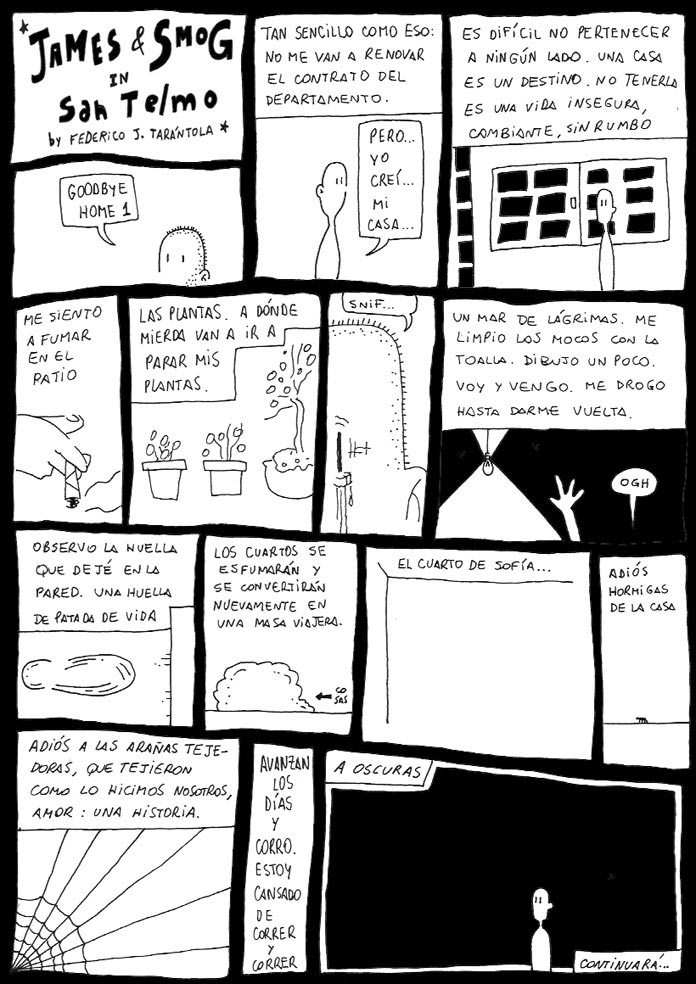 * JAMES & SMOG
IN
San Telmo
by FEDERICO J. TARÁNTOLA *
GOODBYE
HOME 1
TAN SENCILLO COMO ESO:
NO ME VAN A RENOVAR
EL CONTRATO DEL
DEPARTAMENTO.
PERO...
YO
CREÍ...
MI
CASA...
ES DIFÍCIL NO PERTENECER
A NINGÚN LADO. UNA CASA
ES UN DESTINO. NO TENERLA
ES UNA VIDA INSEGURA,
CAMBIANTE, SIN RUMBO
ME SIENTO
A FUMAR
EN EL
PATIO
LAS PLANTAS. A DÓNDE
MIERDA VAN A IR A
PARAR MIS
PLANTAS.
SNIF...
UN MAR DE LÁGRIMAS. ME
LIMPIO LOS MOCOS CON LA
TOALLA. DIBUJO UN POCO.
VOY Y VENGO. ME DROGO
HASTA DARME VUELTA.
OGH
OBSERVO LA HUELLA
QUE DEJÉ EN LA
PARED. UNA HUELLA
DE PATADA DE VIDA
LOS CUARTOS SE
ESFUMARÁN Y
SE CONVERTIRÁN
NUEVAMENTE EN
UNA MASA VIAJERA.
CO
SAS
EL CUARTO DE SOFÍA...
ADIÓS
HORMIGAS
DE LA CASA
ADIÓS A LAS ARAÑAS TEJE-
DORAS, QUE TEJIERON
COMO LO HICIMOS NOSOTROS,
AMOR: UNA HISTORIA.
AVANZAN
LOS
DÍAS
Y
CORRO.
ESTOY
CANSADO
DE
CORRER
Y
CORRER
A OSCURAS
CONTINUARÁ...